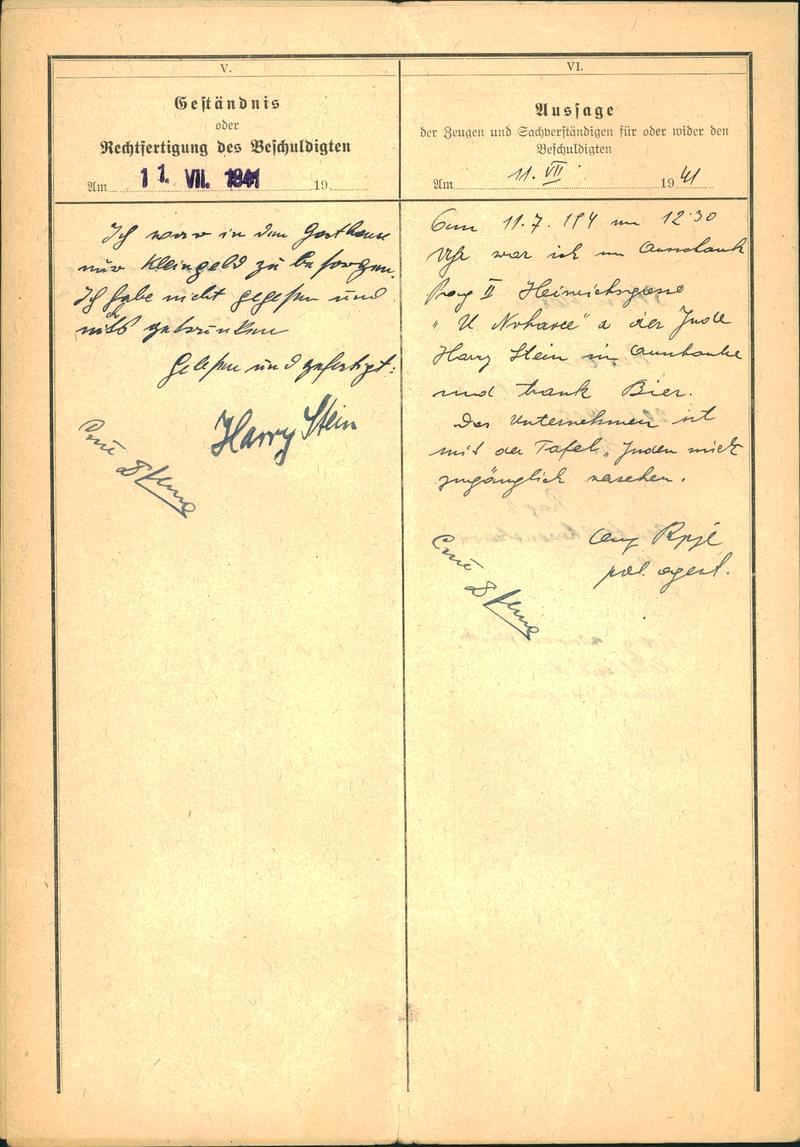 V.
Geständnis
oder
Rechtfertigung des Beschuldigten
Am 11. VII. 1941 19
Ich war in dem Gasthause
nur Kleingeld zu besorgen.
Ich habe nicht gegeßen und
nichts getrunken
Geleßen und gefertigt:
Harry Stein
VI.
Aussage
der Zeugen und Sachverständigen für oder wider den
Beschuldigten
Am 11. VII 1941
Am 11.7.194 um 12·30
Uhr war ich im Ausschank
Prag II Heinrichsgasse
"U Nováců" a der Jude
Harry Stein im
und trank Bier.
Das Unternehmen ist
mit der Tafel "Juden nicht
zugänglich versehen.
pol. agent.